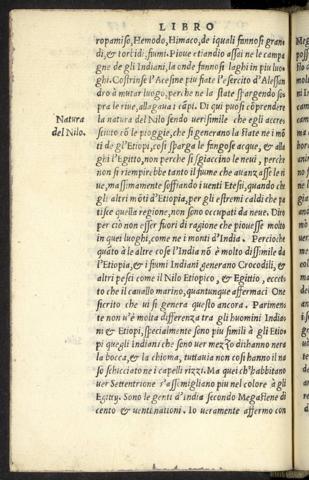 LIBRO
ropamiso, Hemodo, Himaco, de i quali fannosi gran
di, & torbidi, fiumi. Piove etiandio assai ne le campa
gne de gli Indiani, la onde fannosi laghi in piu luo
ghi. Costrinse l'Acesine piu fiate l'esercito d'Alessan
dro à mutar luogo, perche ne la state spargendo so
pra le rive, allagaua i cāpi. Di qui puosi cōprendere
Natura
del Nilo.
la natura del Nilo sendo uerisimile che egli accre
sciuto cō le pioggie, che si generano la state ne i mō
ti de gl'Etiopi, cosi sparga le fangose acque, & alla
ghi l'Egitto, non perche si sgiaccino le neui, perche
non si riempirebbe tanto il fiume che auanzasse le ri
ue, massimamente soffiando i uenti Etesij, quando che
gli altri mōti d'Etiopia, per gli estremi caldi che pa
tisce quella regione, non sono occupati da neue. Diro
per ciò non esser fuori di ragione che piouesse molto
in quei luoghi, come ne i monti d'India. Percioche
quāto à le altre cose l'India nō è molto dissimile da
l'Etiopia, & i fiumi Indiani generano Crocodili, &
altri pesci come il Nilo Etiopico, & Egittio, eccet
to che il cauallo marino, quantunque affermaci One
sicrito che ui si genera questo ancora. Parimen
te non u'è molta differenza tra gli huomini India
ni & Etiopi, specialmente sono piu simili à gli Etio
pi quegli Indiani che sono uer mezzo di: hanno nera
la bocca, & la chioma, tuttauia non cosi hanno il na
so schicciato ne i capelli rizzi. Ma quei ch'habbitano
uer Settentrione s'assimigliano piu nel colore à gli
Egittij. Sono le genti d'India secondo Megastene di
cento & uenti nationi. Io ueramente affermo con